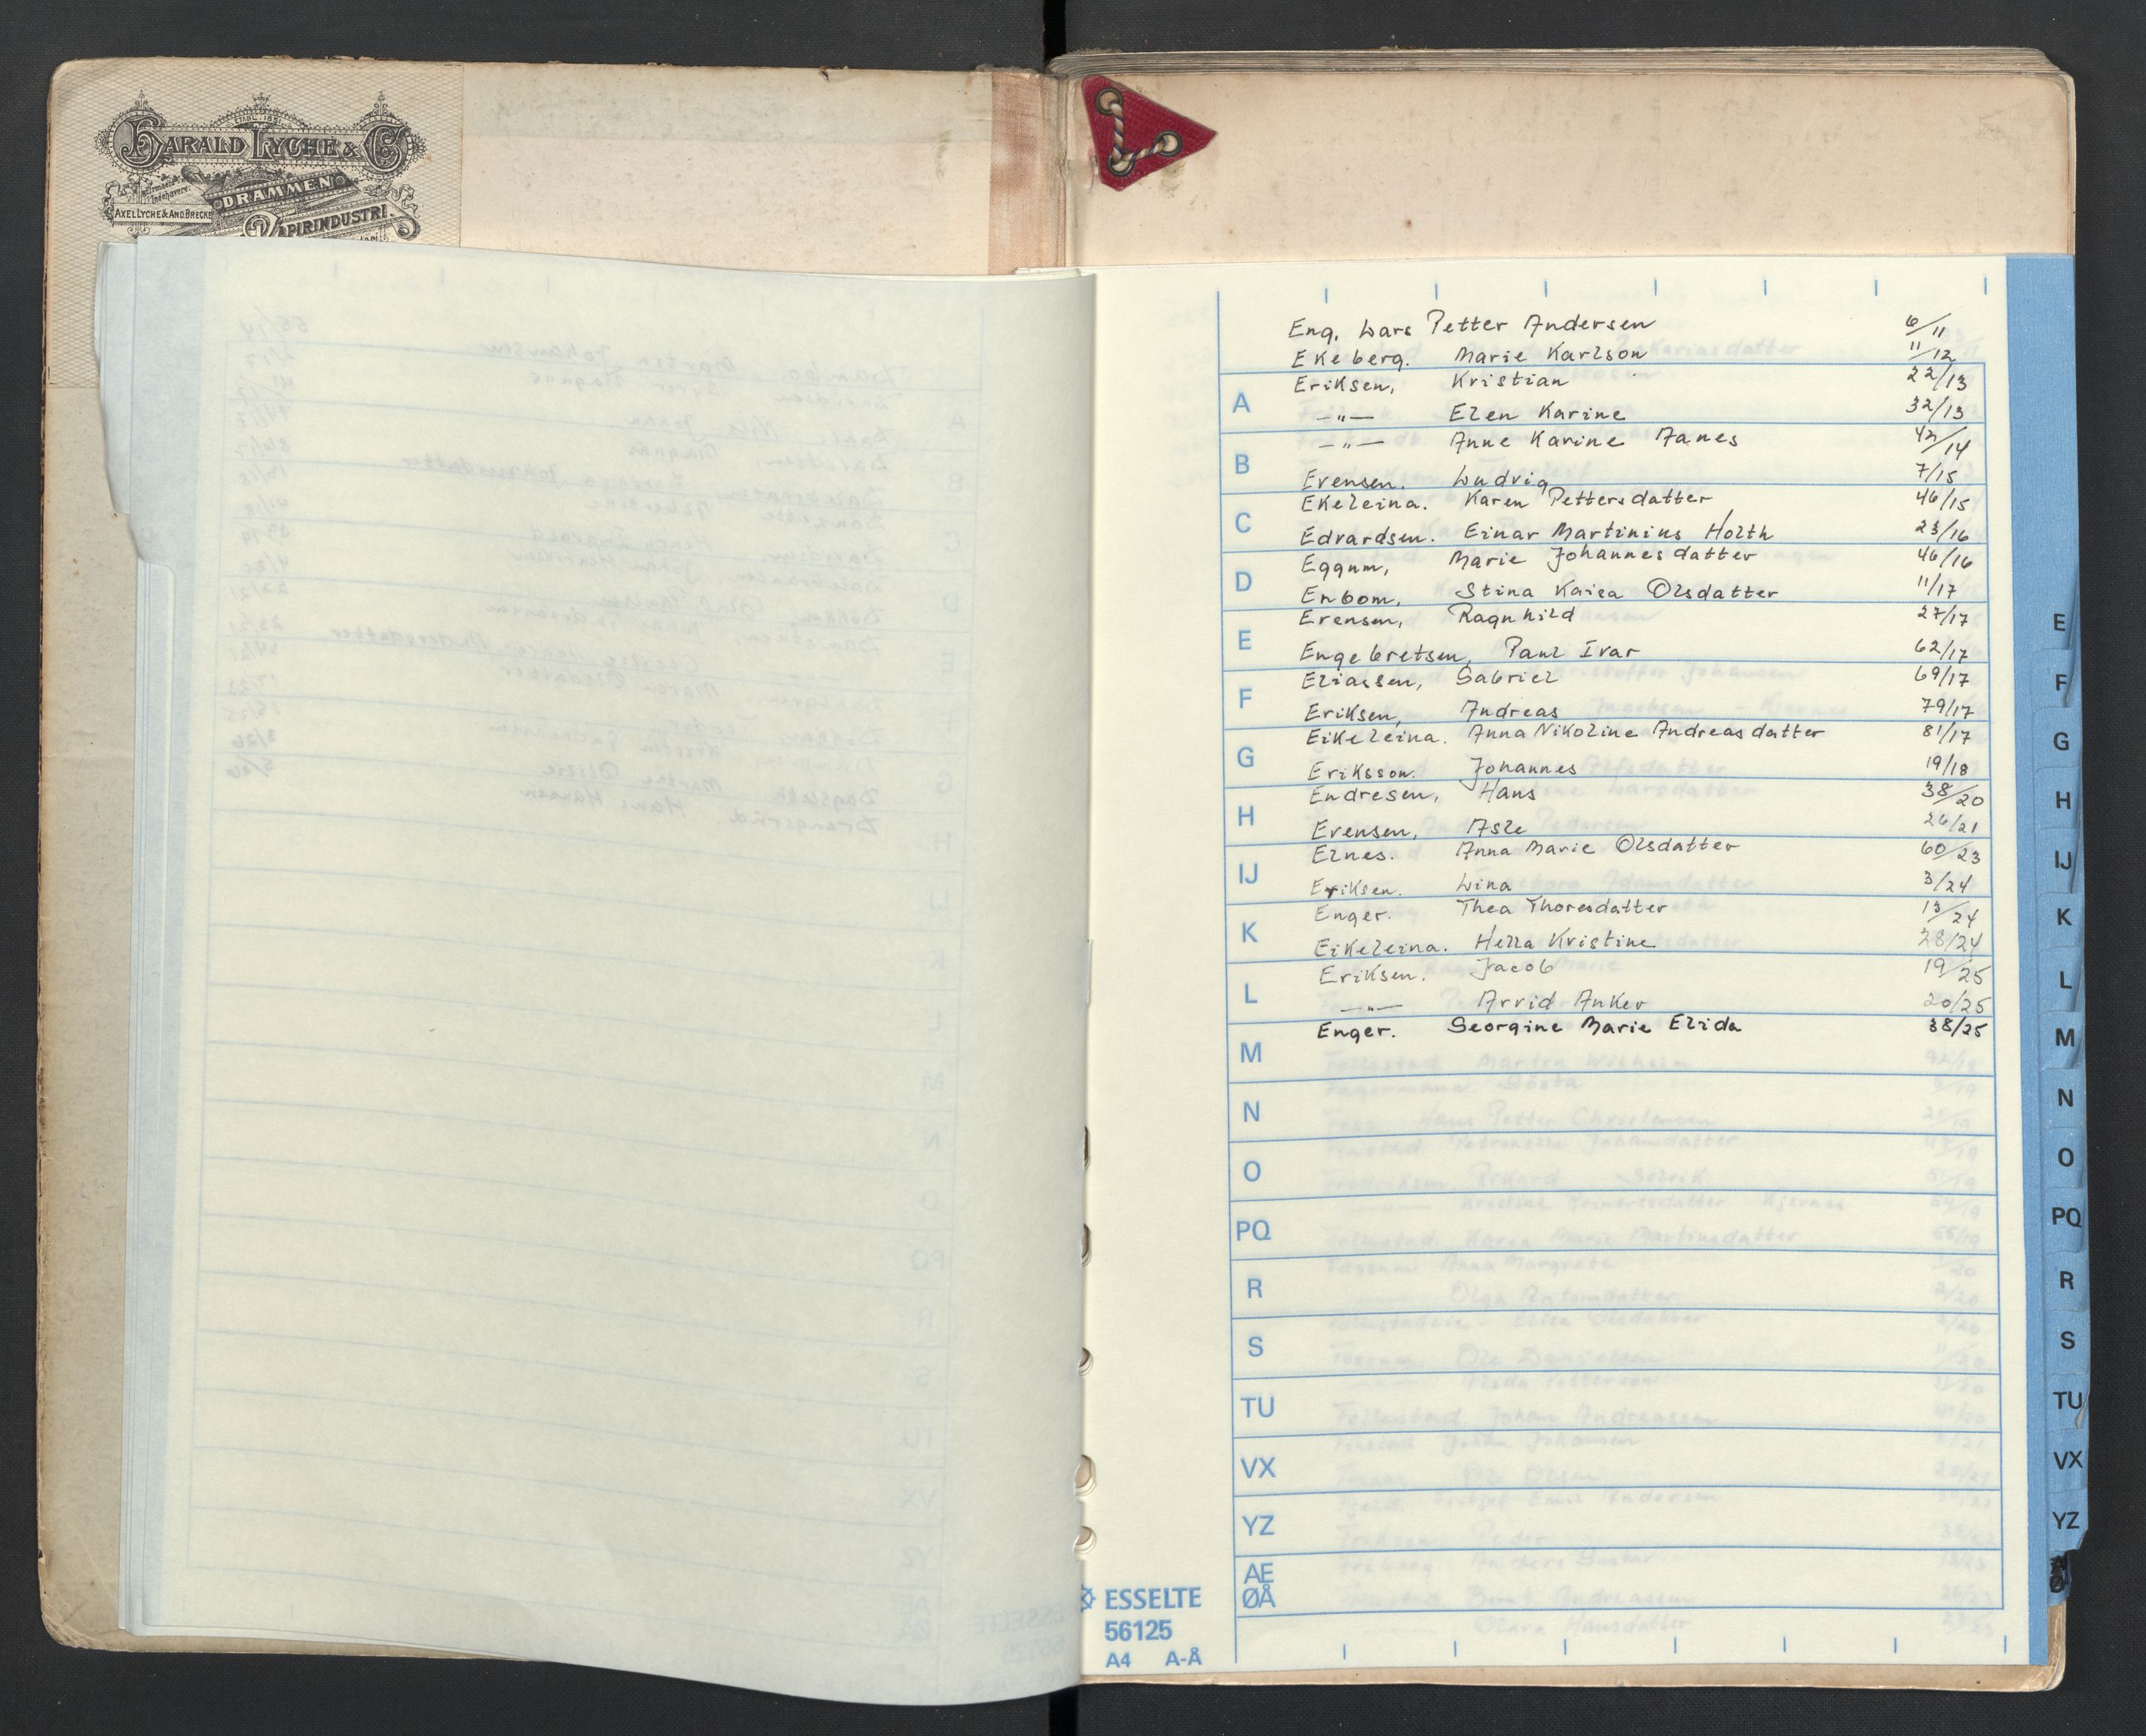 ETABL. 1851
HARALD LYCHE & Co
DRAMMEN
AXEL LYCHE & AND. BRECKE
PAPIRINDUSTRI.
Eng, Lars Petter Andersen 6/11
Ekeberg. Marie Karlson 11/12
Eriksen, Kristian 22/13
A
—"— Elen Karine 32/13
—"— Anne Karine Aanes 42/14
B
Evensen. Ludvig 7/15
Ekeleina. Karen Pettersdatter 46/15
C
Edvardsen. Einar Martinius Holth 23/16
Eggum, Marie Johannesdatter 46/16
D
Enbom, Stina Kaisa Olsdatter 11/17
Evensen, Ragnhild 27/17
E
Engebretsen, Paul Ivar 62/17
Eliassen, Gabriel 69/17
F
Eriksen, Andreas 79/17
Eikeleina. Anna Nikoline Andreasdatter 81/17
G
Eriksson. Johannes 19/18
Endresen, Hans 38/20
H
Evensen, Asle 26/21
Elnes. Anna Marie Olsdatter 60/23
IJ
Eriksen. Lina 3/24
Enger. Thea Thoresdatter 13/24
K
Eikeleina. Hella Kristine 28/24
Eriksen. Jacob 19/25
L
—"— Arvid Anker 20/25
Enger. Georgine Marie Elida 38/25
M
N
O
PQ
R
S
TU
VX
YZ
AE
ØÅ
ESSELTE
56125
A4 A-Å
E
F
G
H
IJ
K
L
M
N
O
PQ
R
S
TU
VX
YZ